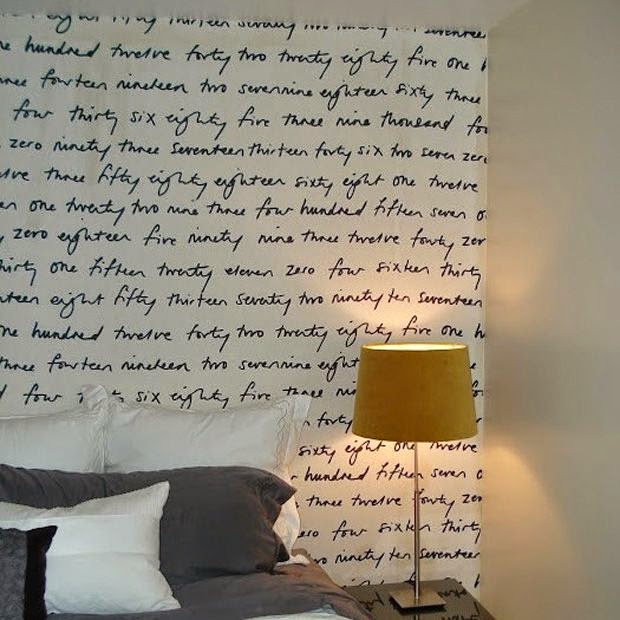 eight fifty thirteen seventy two ninety ten seventeen
one hundred twelve forty two twenty eighty five one h
three fourteen nineteen two seven nine eighteen sixty three
four thirty six eighty five three nine thousand fou
zero ninety three seventeen thirteen forty six two seven zero
elve three fifty eighty eighteen sixty eight one twelve
n one twenty two nine three four hundred fifteen seven o
y zero eighteen five ninety nine three twelve forty zer
hirty one fifteen twenty eleven zero four sixteen thirty
nteen eight fifty thirteen seventy two ninety ten seventeen
one hundred twelve forty two twenty eighty five one h
three fourteen nineteen two seven nine eighteen
four six eighty five three nin
forty
sixty eight one twelve
hundred fifteen seven o
three twelve forty zer
zero four sixteen thirty
wo ninety ten seventeen